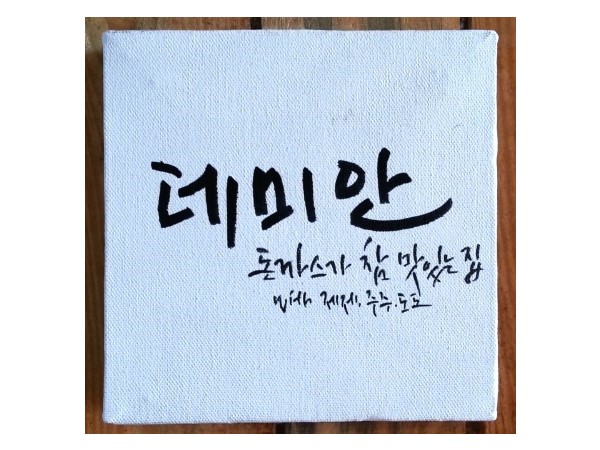 데미안
돈까스가 참 맛있는 집
with 제제.주주.도도